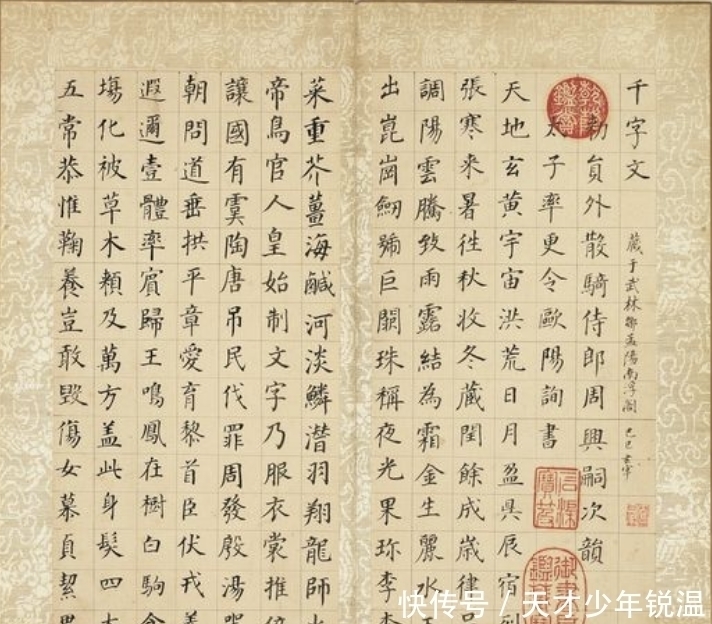 千字文
藏于武林鄒孟陽南浮閣
勅員外散騎侍郎周興嗣次韻
太子率更令歐陽詢書
天地玄黃宇宙洪荒日月盈昃辰宿列
張寒來暑往秋收冬藏閏餘成歲律呂
調陽雲騰致雨露結為霜金生麗水
出崑崗劒號巨闕珠稱夜光果珍李
菜重芥薑海鹹河淡鱗潛羽翔龍師
帝鳥官人皇始制文字乃服衣裳推位
讓國有虞陶唐吊民伐罪周發殷湯
朝問道垂拱平章愛育黎首臣伏戎羌
遐邇壹體率賓歸王鳴鳳在樹白駒食
場化被草木賴及萬方蓋此身髮四大
五常恭惟鞠養豈敢毀傷女慕貞絜男
乾隆鑑賞
快传号 / 天才少年锐温